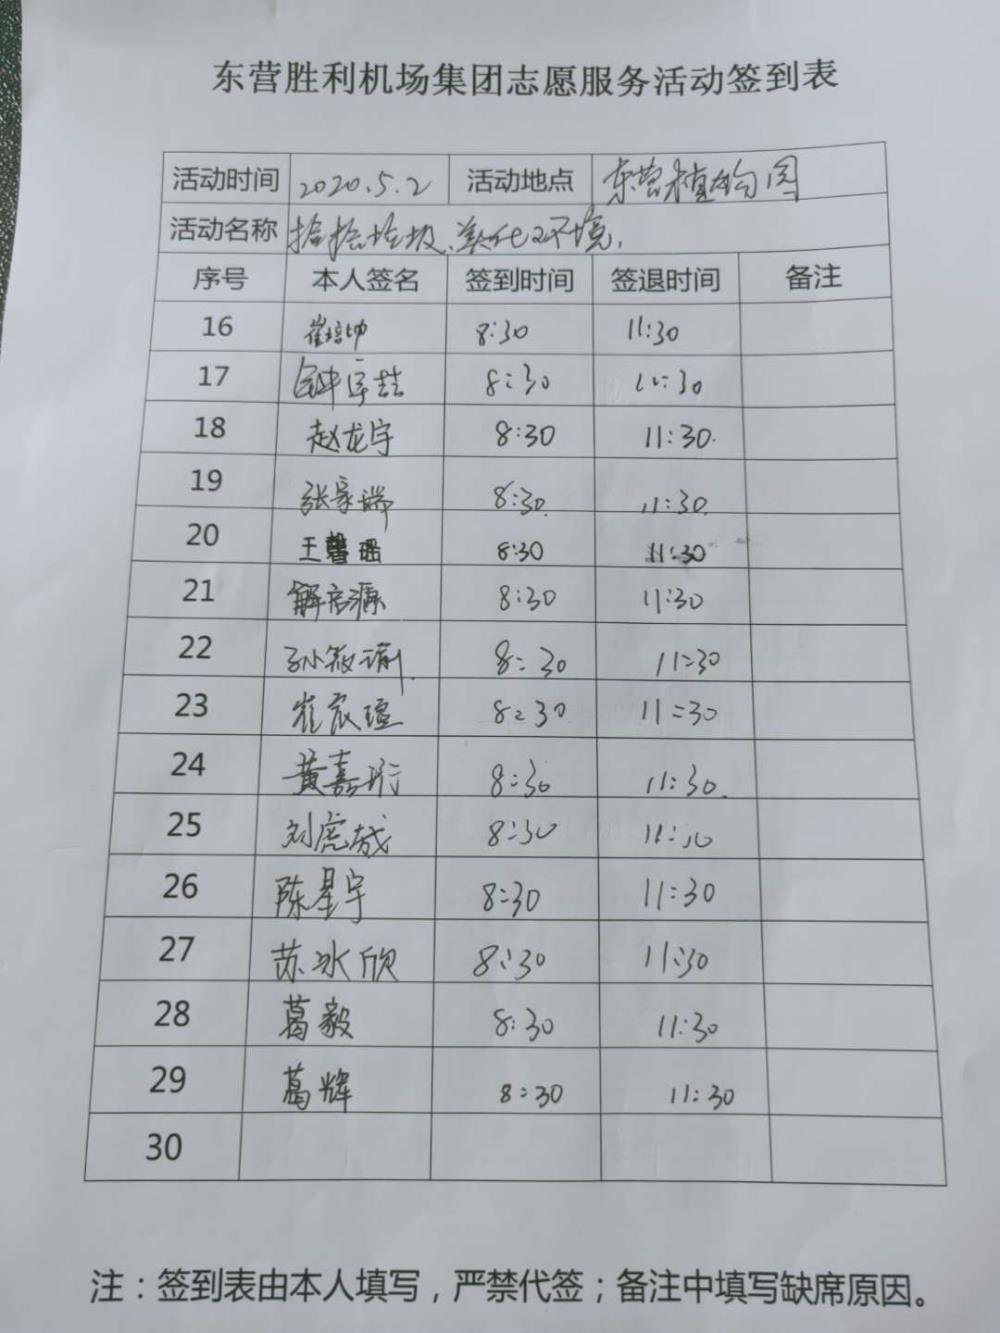 东营胜利机场集团志愿服务活动签到表
活动时间 2020.5.2 活动地点 东营植物园
活动名称 捡拾垃圾、美化环境,
序号 本人签名 签到时间 签退时间 备注
16 崔培坤 8:30 11:30
17 8:30 11:30
18 赵龙宇 8:30 11:30.
19 张家瑞 8:30. 11:30.
20 王馨瑶 8:30 11:30
21 解启源 8:30 11:30
22 8:30 11:30
23 8:30 11:30
24 黄嘉珩 8:30 11:30.
25 刘虎哉 8:30 11:30
26 陈星宇 8:30 11:30
27 苏冰欣 8:30 11:30
28 葛毅 8:30 11:30
29 葛辉 8:30 11:30
30
注：签到表由本人填写，严禁代签；备注中填写缺席原因。